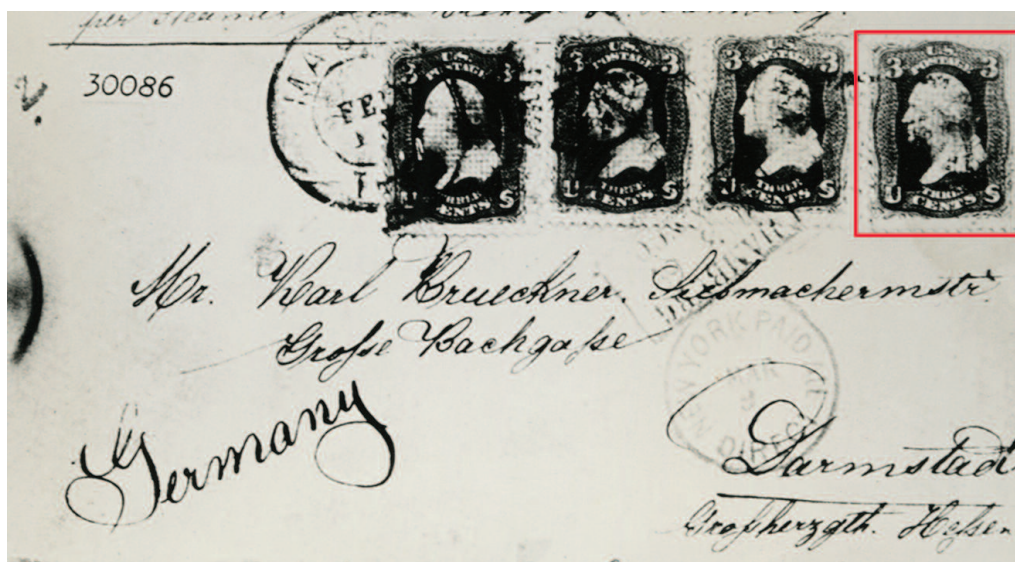 per Steamer
30086
FE
3 U.S. POSTAGE 3
U THREE CENTS S
3 U.S. POSTAGE 3
U THREE CENTS S
3 U.S. POSTAGE 3
U THREE CENTS S
3 U.S. POSTAGE 3
U THREE CENTS S
Mr. Karl Brueckner. Siebmachermstr.
Große Bachgaße
NEW YORK PAID ALL
MAR
DIRECT
Germany
Darmstad
Großherzgth. Heßen